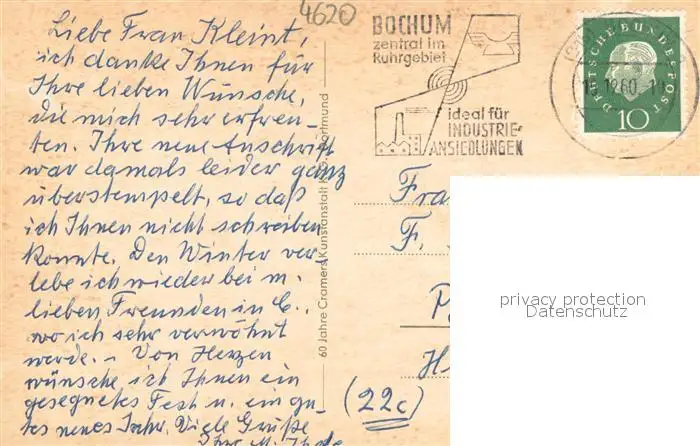 4620
Liebe Frau Kleint,
ich danke Ihnen für
Ihre lieben Wünsche,
die mich sehr erfreu-
ten. Ihre neue Anschrift
war damals leider ganz
überstempelt, so daß
ich Ihnen nicht schreiben
konnte. Den Winter ver-
lebe ich wieder bei m.
lieben Freunden in C.,
wo ich sehr verwöhnt
werde. – Von Herzen
wünsche ich Ihnen ein
gesegnetes Fest u. ein gu-
tes neues Jahr. Viele Grüße
Ihre M.
60 Jahre Cramers Kunstanstalt KG, Dortmund
BOCHUM
zentral im
Ruhrgebiet
ideal für
INDUSTRIE-
ANSIEDLUNGEN
DEUTSCHE BUNDESPOST
10
12.60
Fra
F.
(22c)
privacy protection
Datenschutz